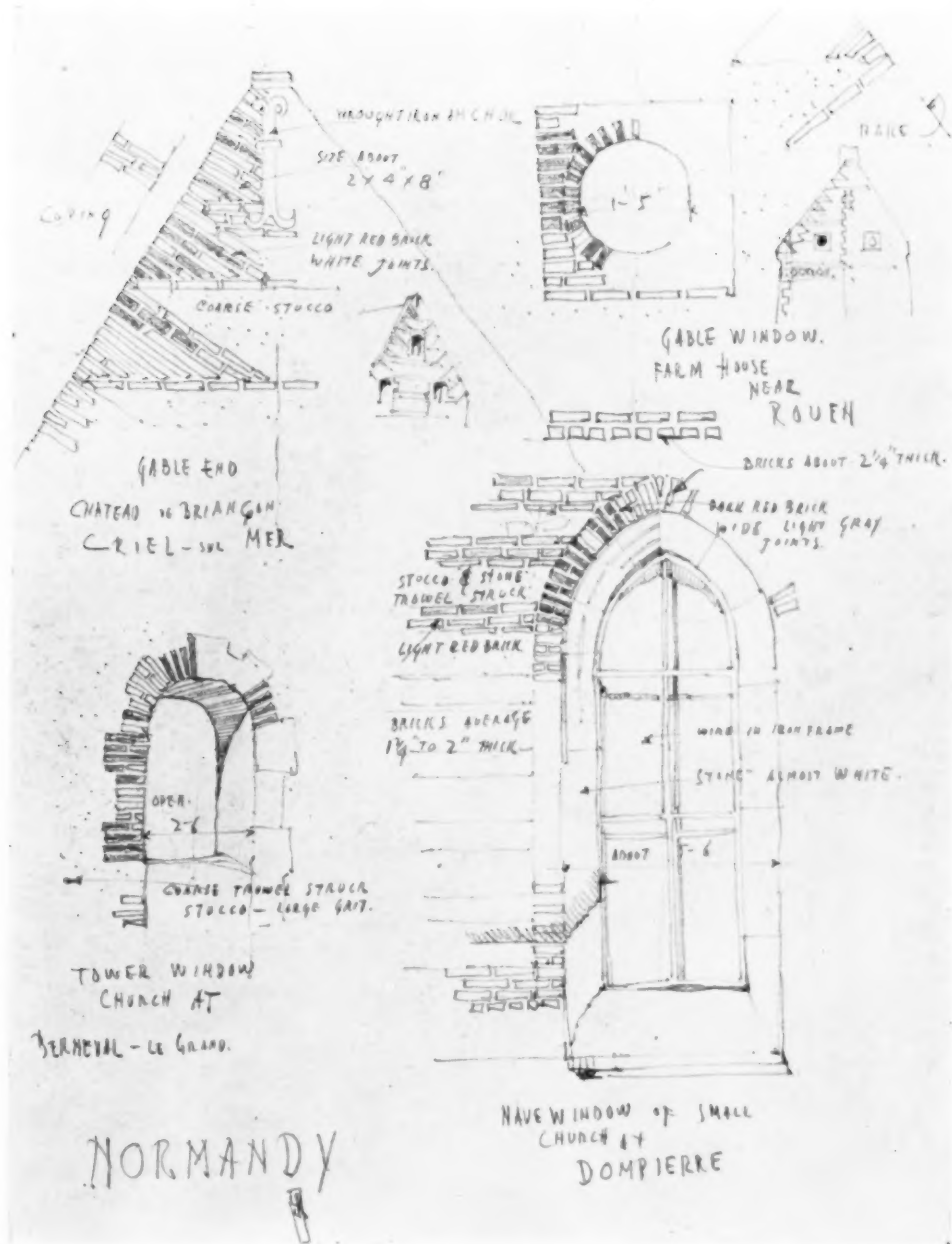 WROUGHT IRON ANCHOR
SIZE ABOUT
2 x 4" x 8"
COPING
LIGHT RED BRICK
WHITE JOINTS.
COARSE STUCCO
GABLE END
CHATEAU DE BRIANÇON
CRIEL - SUR MER
1'-5"
RAKE
GABLE WINDOW.
FARM HOUSE
NEAR
ROUEN
BRICKS ABOUT 2 1/4" THICK.
DARK RED BRICK
WIDE LIGHT GRAY
JOINTS.
STUCCO & STONE
TROWEL STRUCK
LIGHT RED BRICK
BRICKS AVERAGE
1 3/4" TO 2" THICK
WIRE IN IRON FRAME
STONE ALMOST WHITE.
ABOUT 5-6
NAVE WINDOW OF SMALL
CHURCH AT
DOMPIERRE
OPEN.
2-6
COARSE TROWEL STRUCK
STUCCO - LARGE GRIT.
TOWER WINDOW
CHURCH AT
BERNEVAL - LE GRAND.
NORMANDY